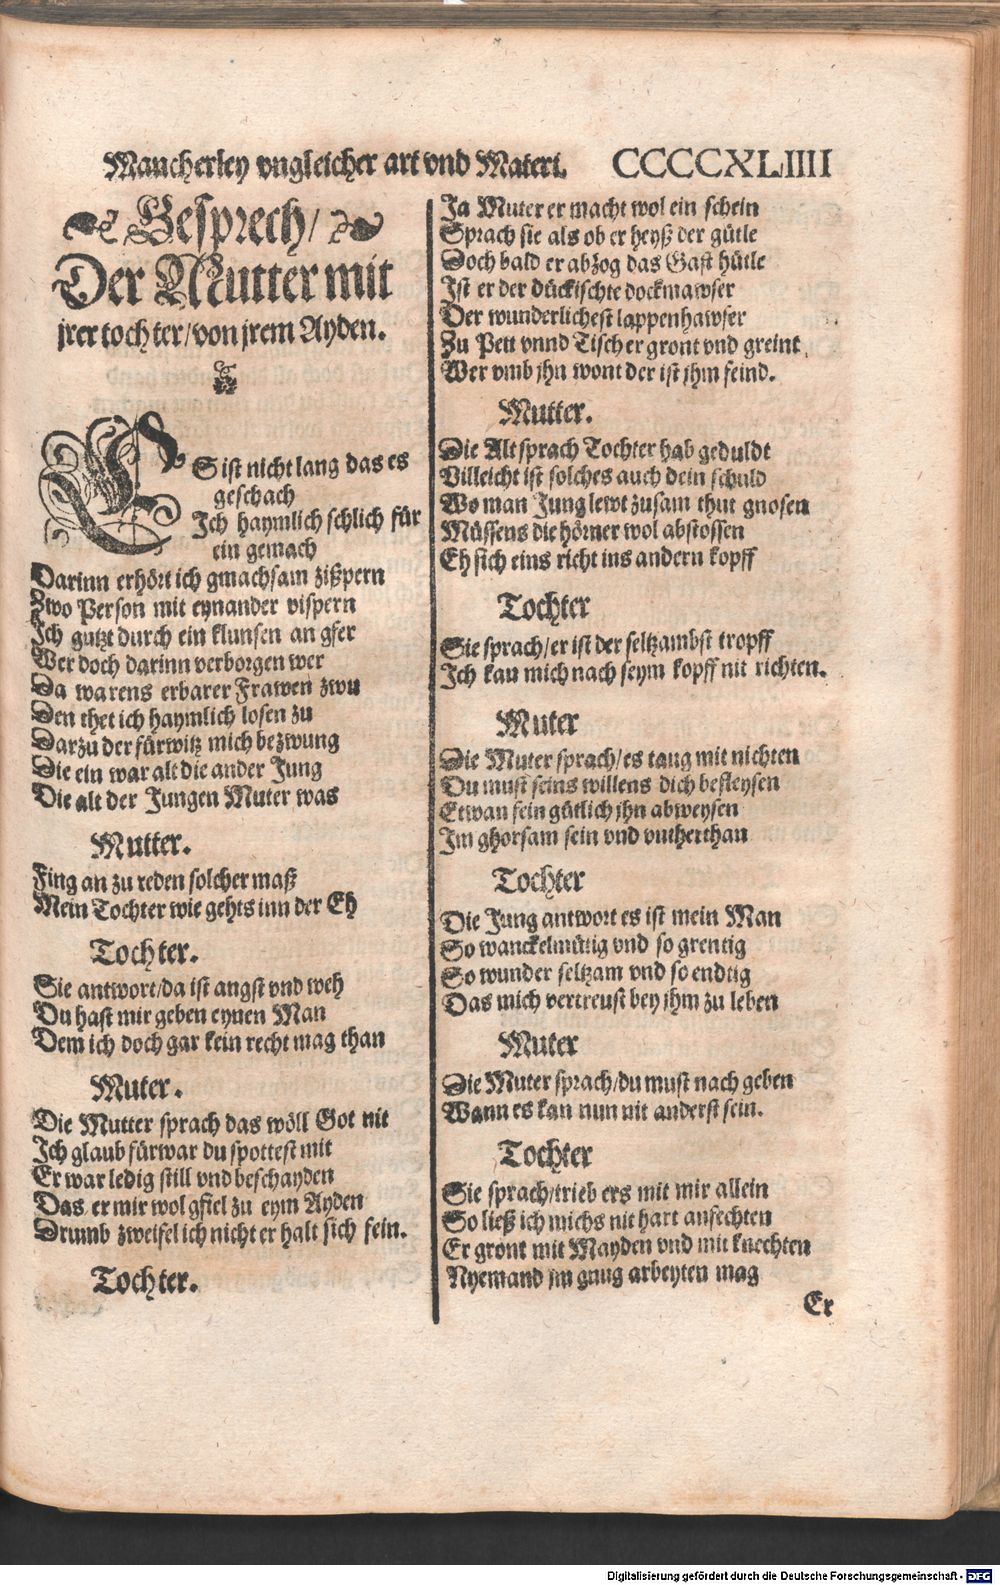 Mancherley vngleicher art vnd Materi. CCCCXLIIII
Gesprech/
Der Mutter mit
jrer tochter/von jrem Ayden.
ES ist nicht lang das es
geschach
Ich haymlich schlich für
ein gemach
Darinn erhört ich gmachsam zißpern
Zwo Person mit eynander vispern
Ich gutzt durch ein klunsen an gfer
Wer doch darinn verborgen wer
Da warens erbarer Frawen zwu
Den thet ich haymlich losen zu
Darzu der fürwitz mich bezwung
Die ein war alt die ander Jung
Die alt der Jungen Muter was
Mutter.
Fing an zu reden solcher maß
Mein Tochter wie gehts inn der Eh
Tochter.
Sie antwort/da ist angst vnd weh
Du hast mir geben eynen Man
Dem ich doch gar kein recht mag than
Muter.
Die Mutter sprach das wöll Got nit
Ich glaub fürwar du spottest mit
Er war ledig still vnd beschayden
Das er mir wol gfiel zu eym Ayden
Drumb zweifel ich nicht er halt sich fein.
Tochter.
Ja Muter er macht wol ein schein
Sprach sie als ob er heyß der gütle
Doch bald er abzog das Gast hütle
Ist er der dückischte dockmawser
Der wunderlichest lappenhawser
Zu Pett vnnd Tisch er gront vnd greint
Wer vmb jhn wont der ist jhm feind.
Mutter.
Die Alt sprach Tochter hab geduldt
Villeicht ist solches auch dein schuld
Wo man Jung lewt zusam thut gnosen
Müssens die hörner wol abstossen
Eh sich eins richt ins andern kopff
Tochter
Sie sprach/er ist der seltzambst tropff
Ich kan mich nach seym kopff nit richten.
Muter
Die Muter sprach/es taug mit nichten
Du must seins willens dich befleysen
Etwan fein gütlich jhn abweysen
Im ghorsam sein vnd vntherthan
Tochter
Die Jung antwort es ist mein Man
So wanckelmütig vnd so grentig
So wunder seltzam vnd so endtig
Das mich vertreust bey jhm zu leben
Muter
Die Muter sprach/du must nach geben
Wann es kan nun nit anderst sein.
Tochter
Sie sprach/trieb ers mit mir allein
So ließ ich michs nit hart anfechten
Er gront mit Mayden vnd mit knechten
Nyemand jm gnug arbeyten mag
Er
Digitalisierung gefördert durch die Deutsche Forschungsgemeinschaft - DFG